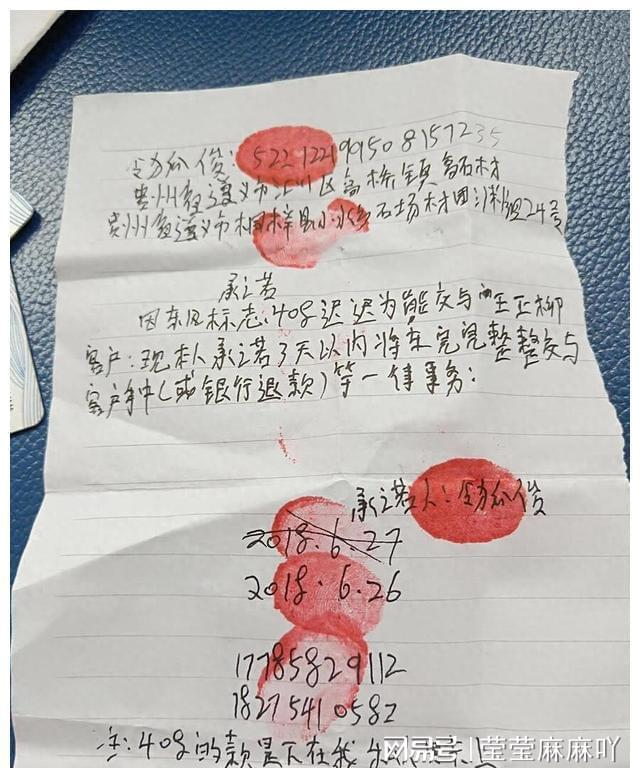 俊: 522122199508157235
贵州省遵义市汇川区高桥镇 石材
贵州省遵义市桐梓县小水乡石场材田 组24号
承诺
因东风标志408迟迟为能交与 王正柳
客户: 现本人承诺3天以内将车完完整整交与
客户手中(或银行退款)等一律事务:
承诺人: 俊
2018.6.27
2018.6.26
17785829112
18275410582
注: 408的款是不在我
网易号 | 莹莹麻麻吖